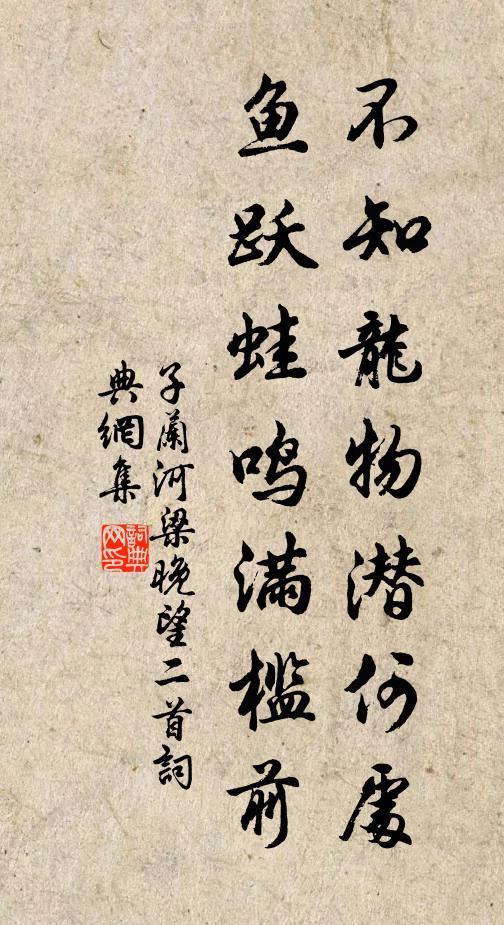 不知龍物潜何處
鱼跃蛙鸣满槛前
子蘭河梁晚望二首詞
典網集
詞典网印